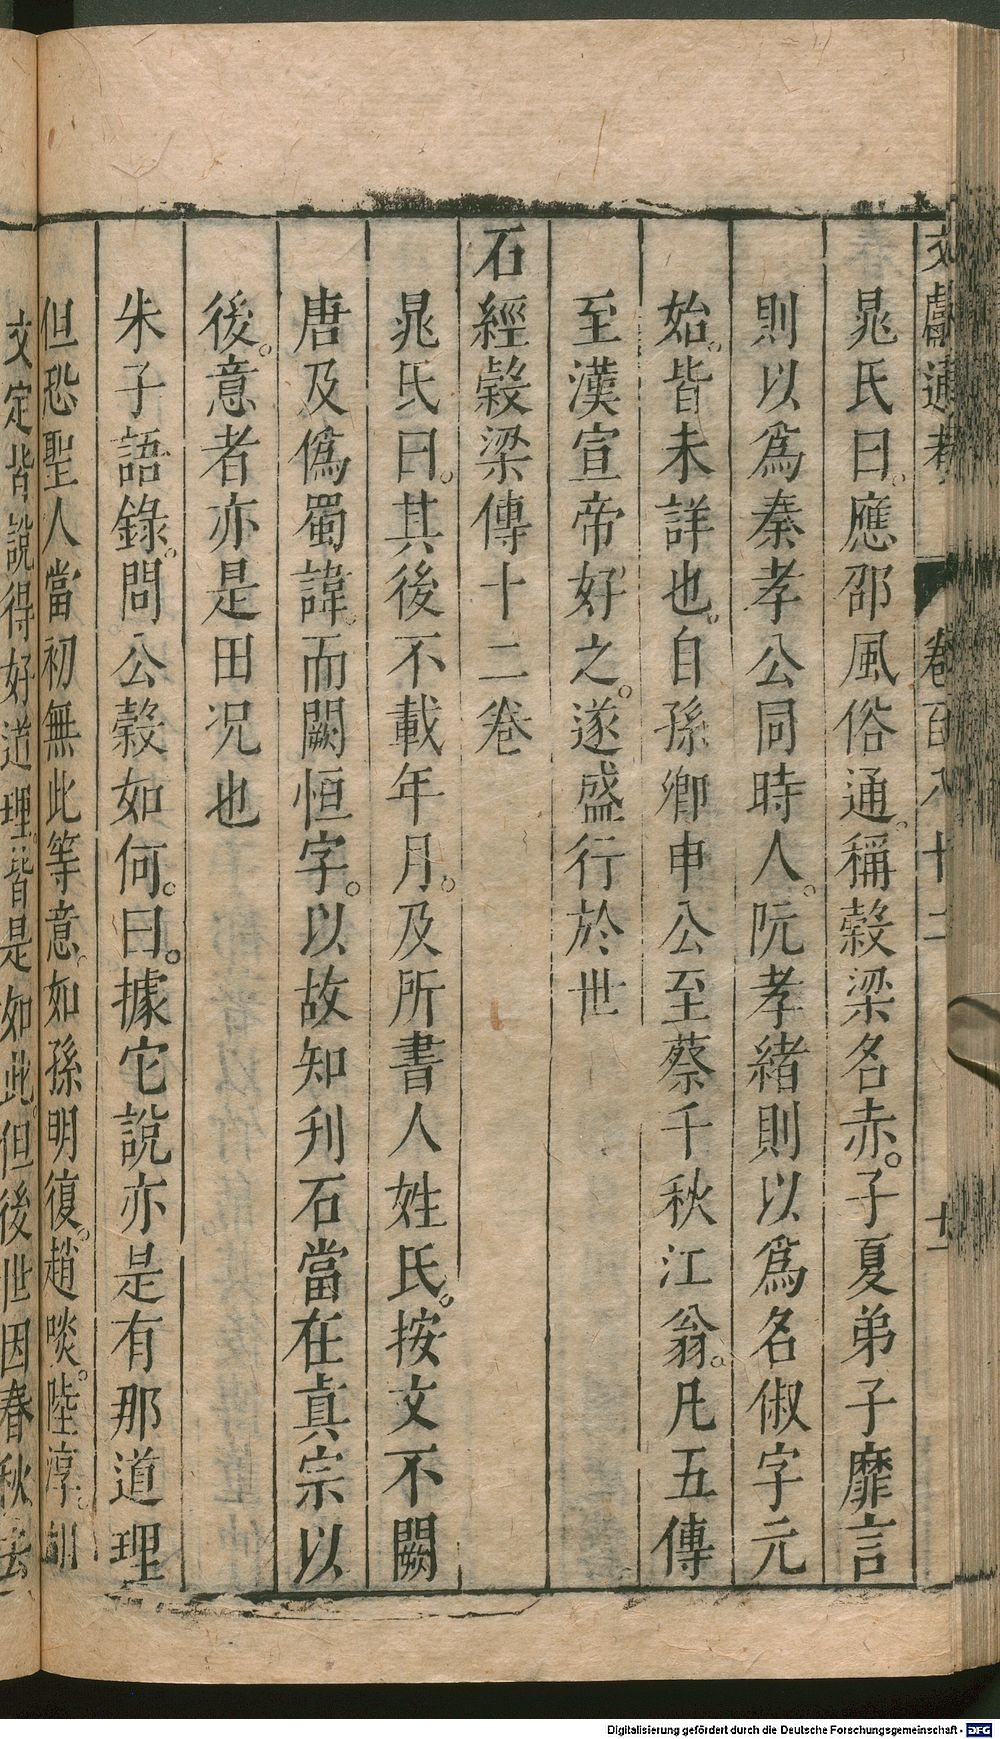 文獻通考 卷百八十二 十一
晁氏曰。應邵風俗通。稱榖梁名赤。子夏弟子靡言
則以爲秦孝公同時人。阮孝緒則以爲名俶字元
始。皆未詳也。自孫卿申公至蔡千秋江翁。凡五傳
至漢宣帝好之。遂盛行於世
石經榖梁傳十二卷
晁氏曰。其後不載年月。及所書人姓氏。按文不闕
唐及僞蜀諱。而闕恒字。以故知刋石當在眞宗以
後。意者亦是田况也
朱子語錄。問公榖如何。曰。據它說亦是有那道理
但恐聖人當初無此等意。如孫明復。趙啖。陸淳。胡
文定皆說得好道理。皆是如此。但後世因春秋去
Digitalisierung gefördert durch die Deutsche Forschungsgemeinschaft - DFG